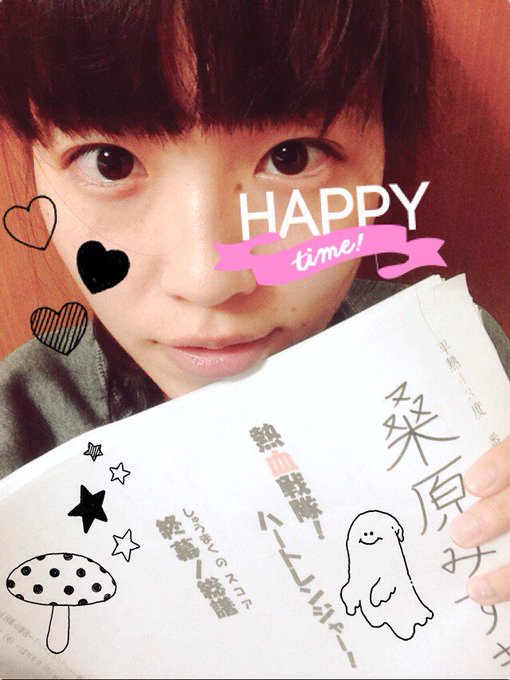 HAPPY
time!
平熱43度
桑原みずき
熱血戦隊!
ハートレンジャー!
しゅうまくのスコア
終幕ノ総譜